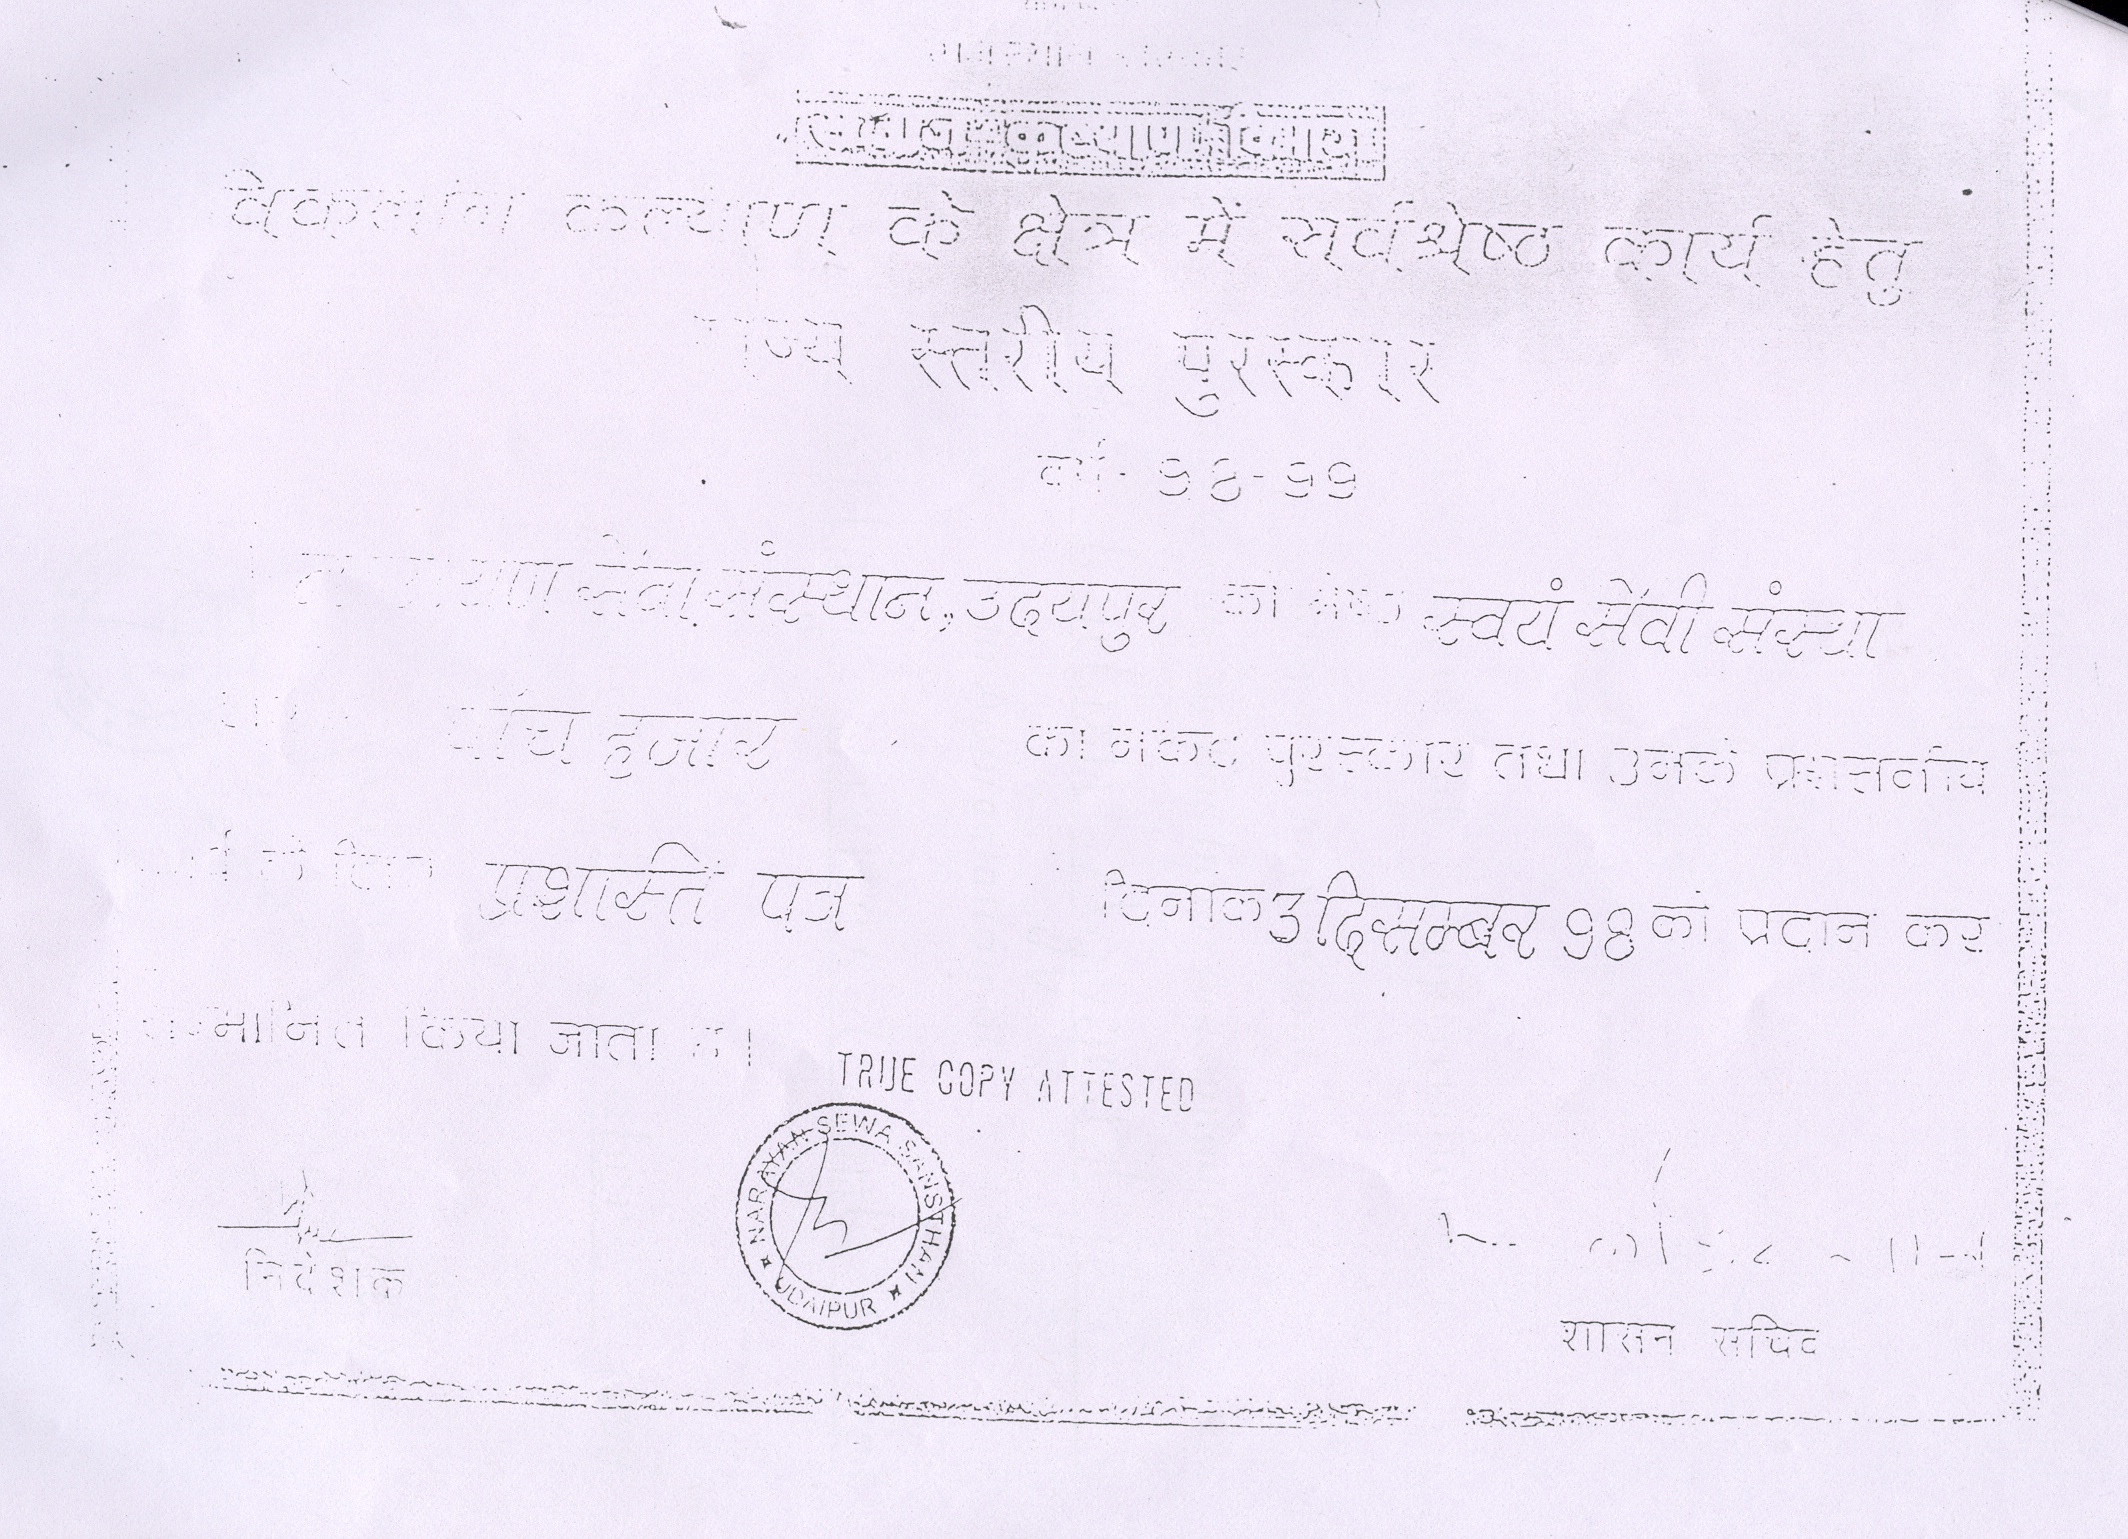 समाज कल्याण विभाग
विकलांग कल्याण के क्षेत्र में सर्वश्रेष्ठ कार्य हेतु
राज्य स्तरीय पुरस्कार
वर्ष - 98-99
नारायण सेवा संस्थान, उदयपुर को श्रेष्ठ स्वयं सेवी संस्था
पांच हजार का नकद पुरस्कार तथा उनके प्रशंसनीय
कार्य के लिए प्रशस्ति पत्र दिनांक 3 दिसम्बर 98 को प्रदान कर
सम्मानित किया जाता है ।
TRUE COPY ATTESTED
NARAYAN SEWA SANSTHAN
UDAIPUR
निदेशक
शासन सचिव